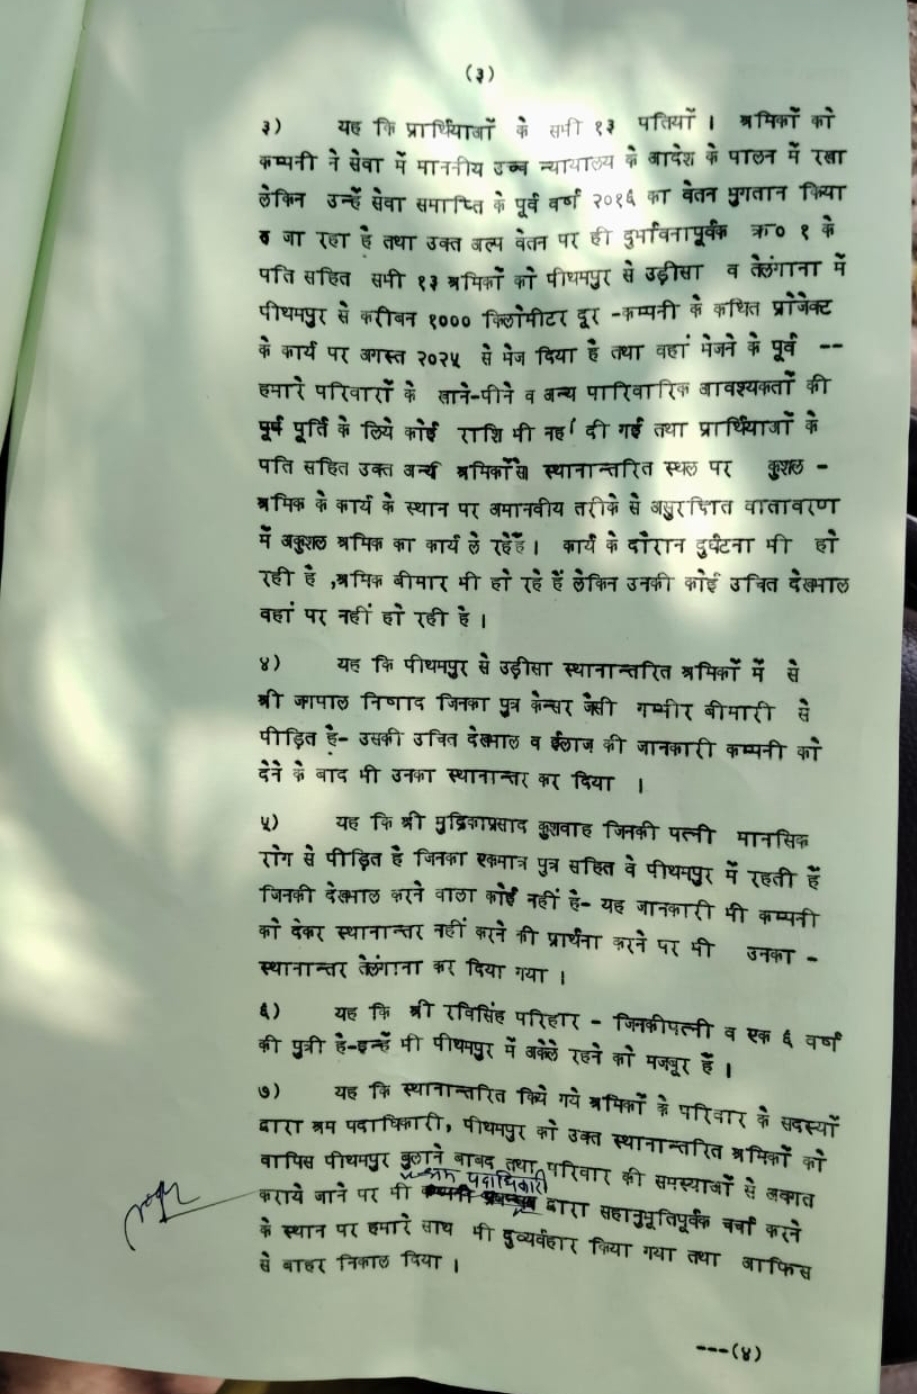 (३)
३) यह कि प्रार्थियाओं के सभी १३ पतियों । श्रमिकों को
कम्पनी ने सेवा में माननीय उच्च न्यायालय के आदेश के पालन में रखा
लेकिन उन्हें सेवा समाप्ति के पूर्व वर्ष २०१६ का वेतन भुगतान किया
जा रहा है तथा उक्त अल्प वेतन पर ही दुर्भावनापूर्वक क्र० १ के
पति सहित सभी १३ श्रमिकों को पीथमपुर से उड़ीसा व तेलंगाना में
पीथमपुर से करीबन १००० किलोमीटर दूर -कम्पनी के कथित प्रोजेक्ट
के कार्य पर अगस्त २०२५ से भेज दिया है तथा वहां भेजने के पूर्व --
हमारे परिवारों के खाने-पीने व अन्य पारिवारिक आवश्यकतों की
पूर्ति के लिये कोई राशि भी नहीं दी गई तथा प्रार्थियाओं के
पति सहित उक्त अन्य श्रमिकोंसे स्थानान्तरित स्थल पर कुशल -
श्रमिक के कार्य के स्थान पर अमानवीय तरीके से असुरक्षित वातावरण
में अकुशल श्रमिक का कार्य ले रहेहैं । कार्य के दौरान दुर्घटना भी हो
रही है ,श्रमिक बीमार भी हो रहे हैं लेकिन उनकी कोई उचित देखभाल
वहां पर नहीं हो रही है ।
४) यह कि पीथमपुर से उड़ीसा स्थानान्तरित श्रमिकों में से
श्री जगपाल निषाद जिनका पुत्र केन्सर जैसी गम्भीर बीमारी से
पीड़ित है- उसकी उचित देखभाल व ईलाज की जानकारी कम्पनी को
देने के बाद भी उनका स्थानान्तर कर दिया ।
५) यह कि श्री मुद्रिकाप्रसाद कुशवाह जिनकी पत्नी मानसिक
रोग से पीड़ित है जिनका एकमात्र पुत्र सहित वे पीथमपुर में रहती हैं
जिनकी देखभाल करने वाला कोई नहीं है- यह जानकारी भी कम्पनी
को देकर स्थानान्तर नहीं करने की प्रार्थना करने पर भी उनका -
स्थानान्तर तेलंगाना कर दिया गया ।
६) यह कि श्री रविसिंह परिहार - जिनकीपत्नी व एक ६ वर्ष
की पुत्री है-इन्हें भी पीथमपुर में अकेले रहने को मजबूर हैं ।
७) यह कि स्थानान्तरित किये गये श्रमिकों के परिवार के सदस्यों
द्वारा श्रम पदाधिकारी, पीथमपुर को उक्त स्थानान्तरित श्रमिकों को
वापिस पीथमपुर बुलाने बाबद तथा परिवार की समस्याओं से अवगत
श्रम पदाधिकारी
कराये जाने पर भी द्वारा सहानुभूतिपूर्वक चर्चा करने
के स्थान पर हमारे साथ भी दुव्यर्वहार किया गया तथा आफिस
से बाहर निकाल दिया ।
---(४)